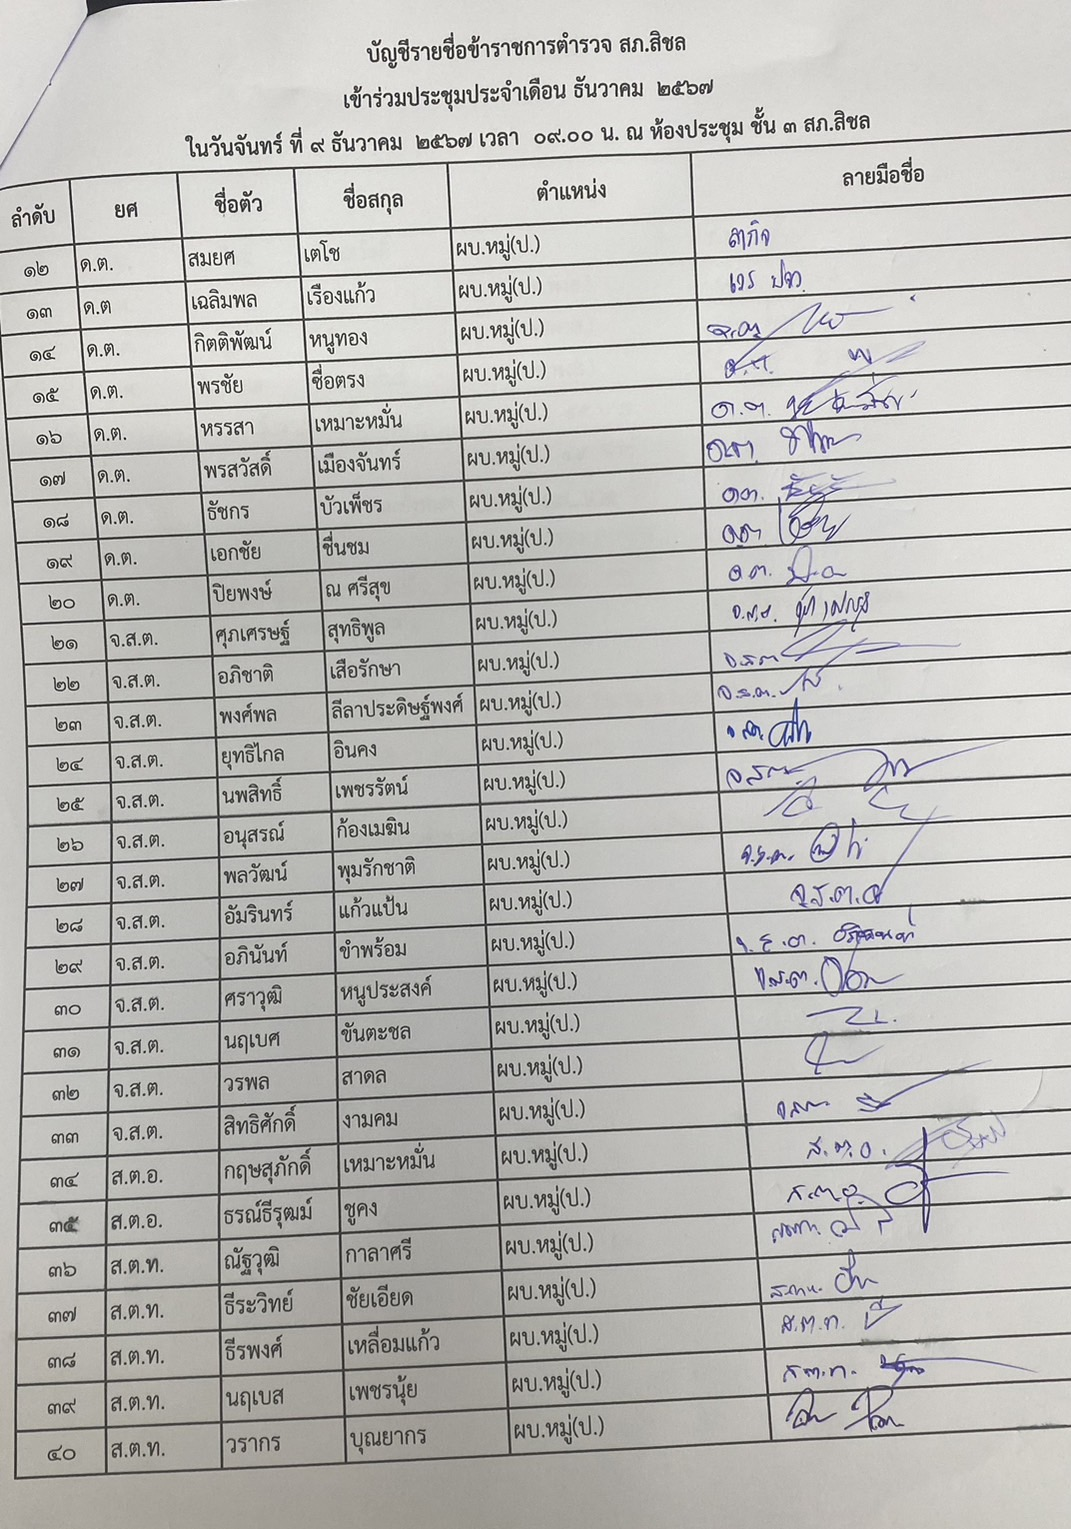 บัญชีรายชื่อข้าราชการตำรวจ สภ.สิชล
เข้าร่วมประชุมประจำเดือน ธันวาคม ๒๕๖๗
ในวันจันทร์ ที่ ๙ ธันวาคม ๒๕๖๗ เวลา ๐๙.๐๐ น. ณ ห้องประชุม ชั้น ๓ สภ.สิชล
ลำดับ ยศ ชื่อตัว ชื่อสกุล ตำแหน่ง ลายมือชื่อ
๑๒ ด.ต. สมยศ เตโช ผบ.หมู่(ป.)
๑๓ ด.ต เฉลิมพล เรืองแก้ว ผบ.หมู่(ป.)
๑๔ ด.ต. กิตติพัฒน์ หนูทอง ผบ.หมู่(ป.)
๑๕ ด.ต. พรชัย ชื่อตรง ผบ.หมู่(ป.)
๑๖ ด.ต. หรรสา เหมาะหมั่น ผบ.หมู่(ป.) ด.ต.
๑๗ ด.ต. พรสวัสดิ์ เมืองจันทร์ ผบ.หมู่(ป.)
๑๘ ด.ต. ธัชกร บัวเพ็ชร ผบ.หมู่(ป.) ดต.
๑๙ ด.ต. เอกชัย ชื่นชม ผบ.หมู่(ป.)
๒๐ ด.ต. ปิยพงษ์ ณ ศรีสุข ผบ.หมู่(ป.) ด.ต.
๒๑ จ.ส.ต. ศุภเศรษฐ์ สุทธิพูล ผบ.หมู่(ป.)
๒๒ จ.ส.ต. อภิชาติ เสือรักษา ผบ.หมู่(ป.) จ.ส.ต
๒๓ จ.ส.ต. พงศ์พล ลีลาประดิษฐ์พงศ์ ผบ.หมู่(ป.) จ.ส.ต.
๒๔ จ.ส.ต. ยุทธิไกล อินคง ผบ.หมู่(ป.)
๒๕ จ.ส.ต. นพสิทธิ์ เพชรรัตน์ ผบ.หมู่(ป.)
๒๖ จ.ส.ต. อนุสรณ์ ก้องเมฆิน ผบ.หมู่(ป.)
๒๗ จ.ส.ต. พลวัฒน์ พุมรักชาติ ผบ.หมู่(ป.) จ.ส.ต.
๒๘ จ.ส.ต. อัมรินทร์ แก้วแป้น ผบ.หมู่(ป.) จ.ส.ต.
๒๙ จ.ส.ต. อภินันท์ ขำพร้อม ผบ.หมู่(ป.) จ.ส.ต. อภินันท์
๓๐ จ.ส.ต. ศราวุฒิ หนูประสงค์ ผบ.หมู่(ป.) จ.ส.ต.
๓๑ จ.ส.ต. นฤเบศ ขันตะชล ผบ.หมู่(ป.)
๓๒ จ.ส.ต. วรพล สาดล ผบ.หมู่(ป.)
๓๓ จ.ส.ต. สิทธิศักดิ์ งามคม ผบ.หมู่(ป.)
๓๔ ส.ต.อ. กฤษสุภักดิ์ เหมาะหมั่น ผบ.หมู่(ป.) ส.ต.อ.
๓๕ ส.ต.อ. ธรณ์ธีรุฒม์ ชูคง ผบ.หมู่(ป.) ส.ต.อ.
๓๖ ส.ต.ท. ณัฐวุฒิ กาลาศรี ผบ.หมู่(ป.)
๓๗ ส.ต.ท. ธีระวิทย์ ชัยเอียด ผบ.หมู่(ป.)
๓๘ ส.ต.ท. ธีรพงศ์ เหลื่อมแก้ว ผบ.หมู่(ป.) ส.ต.ท.
๓๙ ส.ต.ท. นฤเบส เพชรนุ้ย ผบ.หมู่(ป.) ส.ต.ท.
๔๐ ส.ต.ท. วรากร บุณยากร ผบ.หมู่(ป.)